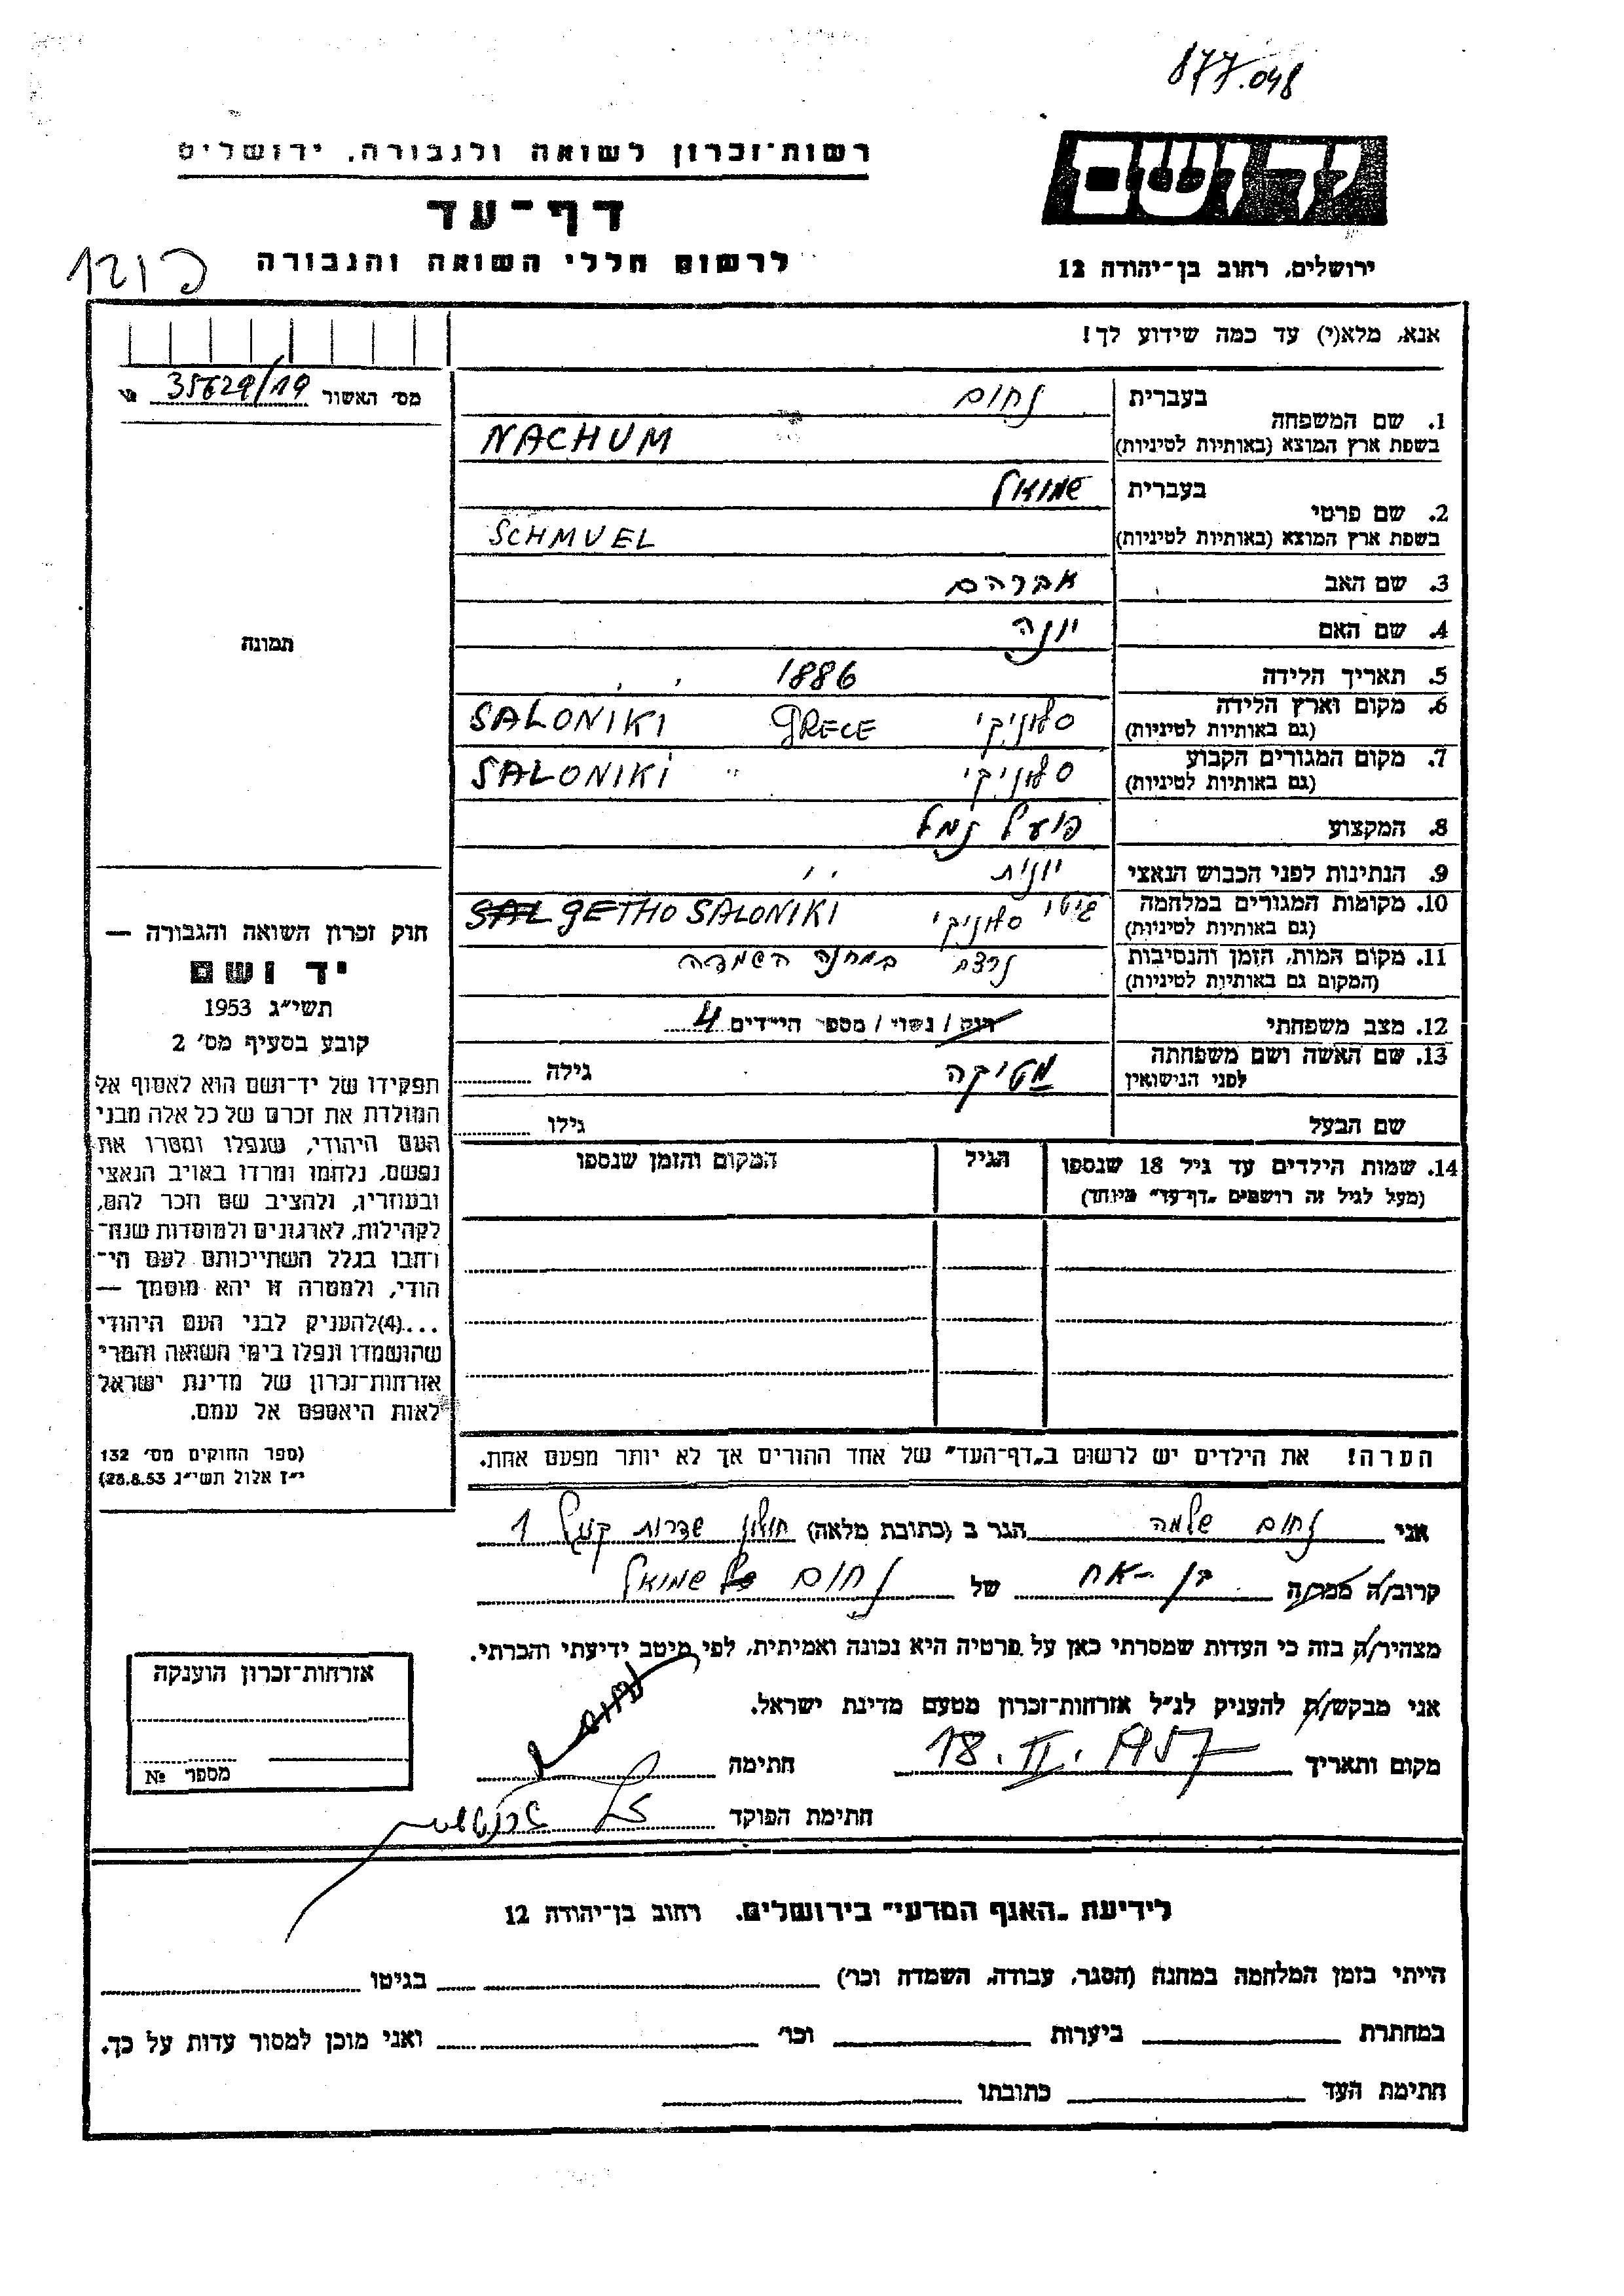 877.048
רשות־זכרון לשואה ולגבורה, ירושלים
יד ושם
דף־עד
לרשום חללי השואה והגבורה
ירושלים, רחוב בן־יהודה 12
אנא, מלא(י) עד כמה שידוע לך!
מס׳ האשור 35629/19
1. שם המשפחה בעברית נחום
בשפת ארץ המוצא (באותיות לטיניות) NACHUM
2. שם פרטי בעברית שמואל
בשפת ארץ המוצא (באותיות לטיניות) SCHMUEL
3. שם האב אברהם
4. שם האם יונה
5. תאריך הלידה 1886
6. מקום וארץ הלידה (גם באותיות לטיניות) סלוניקי GRECE SALONIKI
7. מקום המגורים הקבוע (גם באותיות לטיניות) סלוניקי " SALONIKI
8. המקצוע פועל נמל
9. הנתינות לפני הכבוש הנאצי יונית
10. מקומות המגורים במלחמה (גם באותיות לטיניות) גיטו סלוניקי SAL GETHO SALONIKI
11. מקום המות, הזמן והנסיבות (המקום גם באותיות לטיניות) נרצח במחנה השמדה
12. מצב משפחתי רווק / נשוי / מספר הילדים 4
13. שם האשה ושם משפחתה לפני הנישואין מטיקה גילה
שם הבעל גילו
14. שמות הילדים עד גיל 18 שנספו הגיל המקום והזמן שנספו
(מעל לגיל זה רושמים „דף־עד” מיוחד)
הערה! את הילדים יש לרשום ב„דף־העד” של אחד ההורים אך לא יותר מפעם אחת.
תמונה
חוק זכרון השואה והגבורה —
יד ושם
תשי״ג 1953
קובע בסעיף מס׳ 2
תפקידו של יד־ושם הוא לאסוף אל
המולדת את זכרם של כל אלה מבני
העם היהודי, שנפלו ומסרו את
נפשם, נלחמו ומרדו באויב הנאצי
ובעוזריו, ולהציב שם וזכר להם,
לקהילות, לארגונים ולמוסדות שנח־
רבו בגלל השתייכותם לעם הי־
הודי, ולמטרה זו יהא מוסמך —
...(4)להעניק לבני העם היהודי
שהושמדו ונפלו בימי השואה והמרי
אזרחות־זכרון של מדינת ישראל
לאות היאספם אל עמם.
(ספר החוקים מס׳ 132
י״ז אלול תשי״ג 28.8.53)
אני נחום שלמה הגר ב (כתובת מלאה) חולון שדרות קוגל 1
קרוב/ה מכר/ה בן-אח של נחום שמואל
מצהיר/ה בזה כי העדות שמסרתי כאן על פרטיה היא נכונה ואמיתית, לפי מיטב ידיעתי והכרתי.
אני מבקש/ת להעניק לנ״ל אזרחות־זכרון מטעם מדינת ישראל.
מקום ותאריך 18.II.1957 חתימה נחום
חתימת הפוקד
אזרחות־זכרון הוענקה
מספר №
לידיעת „האגף המדעי” בירושלים, רחוב בן־יהודה 12
הייתי בזמן המלחמה במחנה (הסגר, עבודה, השמדה וכו׳) בגיטו
במחתרת ביערות וכו׳ ואני מוכן למסור עדות על כך.
חתימת העד כתובתו